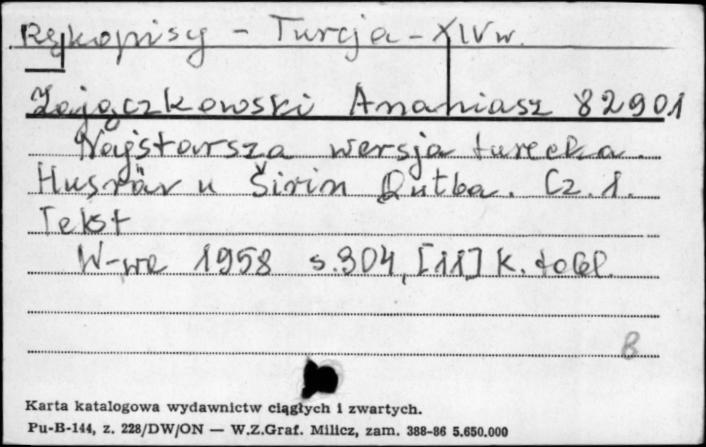 Rękopisy - Turcja - XIV w.
Zajączkowski Ananiasz 82901
Najstarsza wersja turecka
Husräv u Širin Qutba. Cz. 1.
Tekst
W-wa 1958 s. 304, [11] k. tabl.
B
Karta katalogowa wydawnictw ciągłych i zwartych.
Pu-B-144, z. 228/DW/ON — W.Z.Graf. Milicz, zam. 388-86 5.650.000